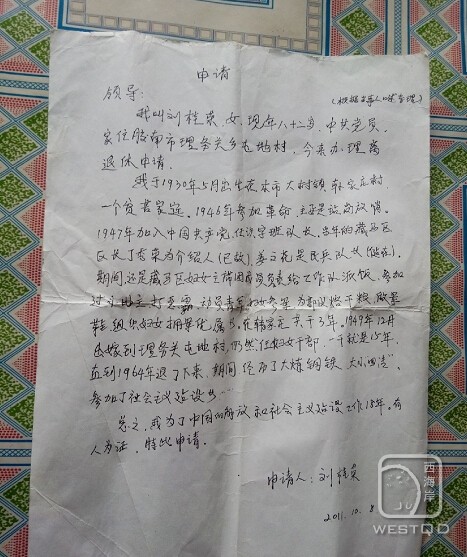 申请
(根据本人口述整理)
领导:
我叫刘桂荣,女,现年八十二岁,中共党员,
家住胶南市理务关乡屯地村,今来办理离
退休申请。
我于1930年5月出生在本市大村镇韩家庄村
一个贫苦家庭。1946年参加革命,主要是站岗放哨。
1947年加入中国共产党,任识字班队长,当年的藏马区
区长丁志来为介绍人(已故),姜立花是民兵队长(健在),
期间,还是藏马区妇女主席团成员负责给工作队派饭,参加
过土地主打恶霸,动员青年妇女参军为部队烙干粮,做军
鞋,组织妇女拥军优属。在韩家庄共干3年。1949年12月
出嫁到理务关屯地村,仍然任妇女干部,一干就是15年,
直到1964年退了下来,期间经历了大炼钢铁,大小四清,
参加了社会主义建设等……
总之,我为了中国的解放和社会主义建设工作18年。有
人为证,特此申请。
申请人:刘桂荣
2011.10.8
西海岸
WESTQD